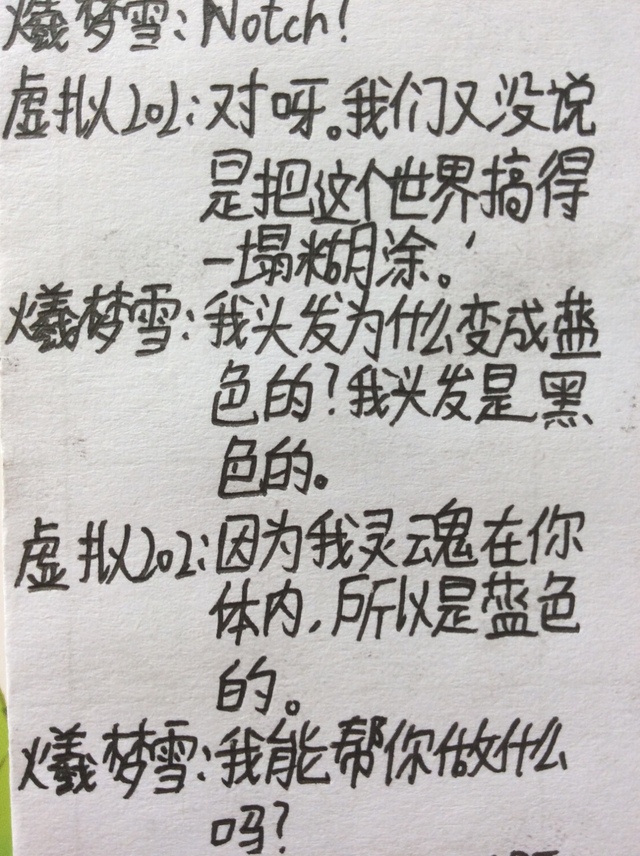 爔梦雪:Notch!
虚拟202:对呀。我们又没说
是把这个世界搞得
一塌糊涂。
爔梦雪:我头发为什么变成蓝
色的?我头发是黑
色的。
虚拟202:因为我灵魂在你
体内,所以是蓝色
的。
爔梦雪:我能帮你做什么
吗?